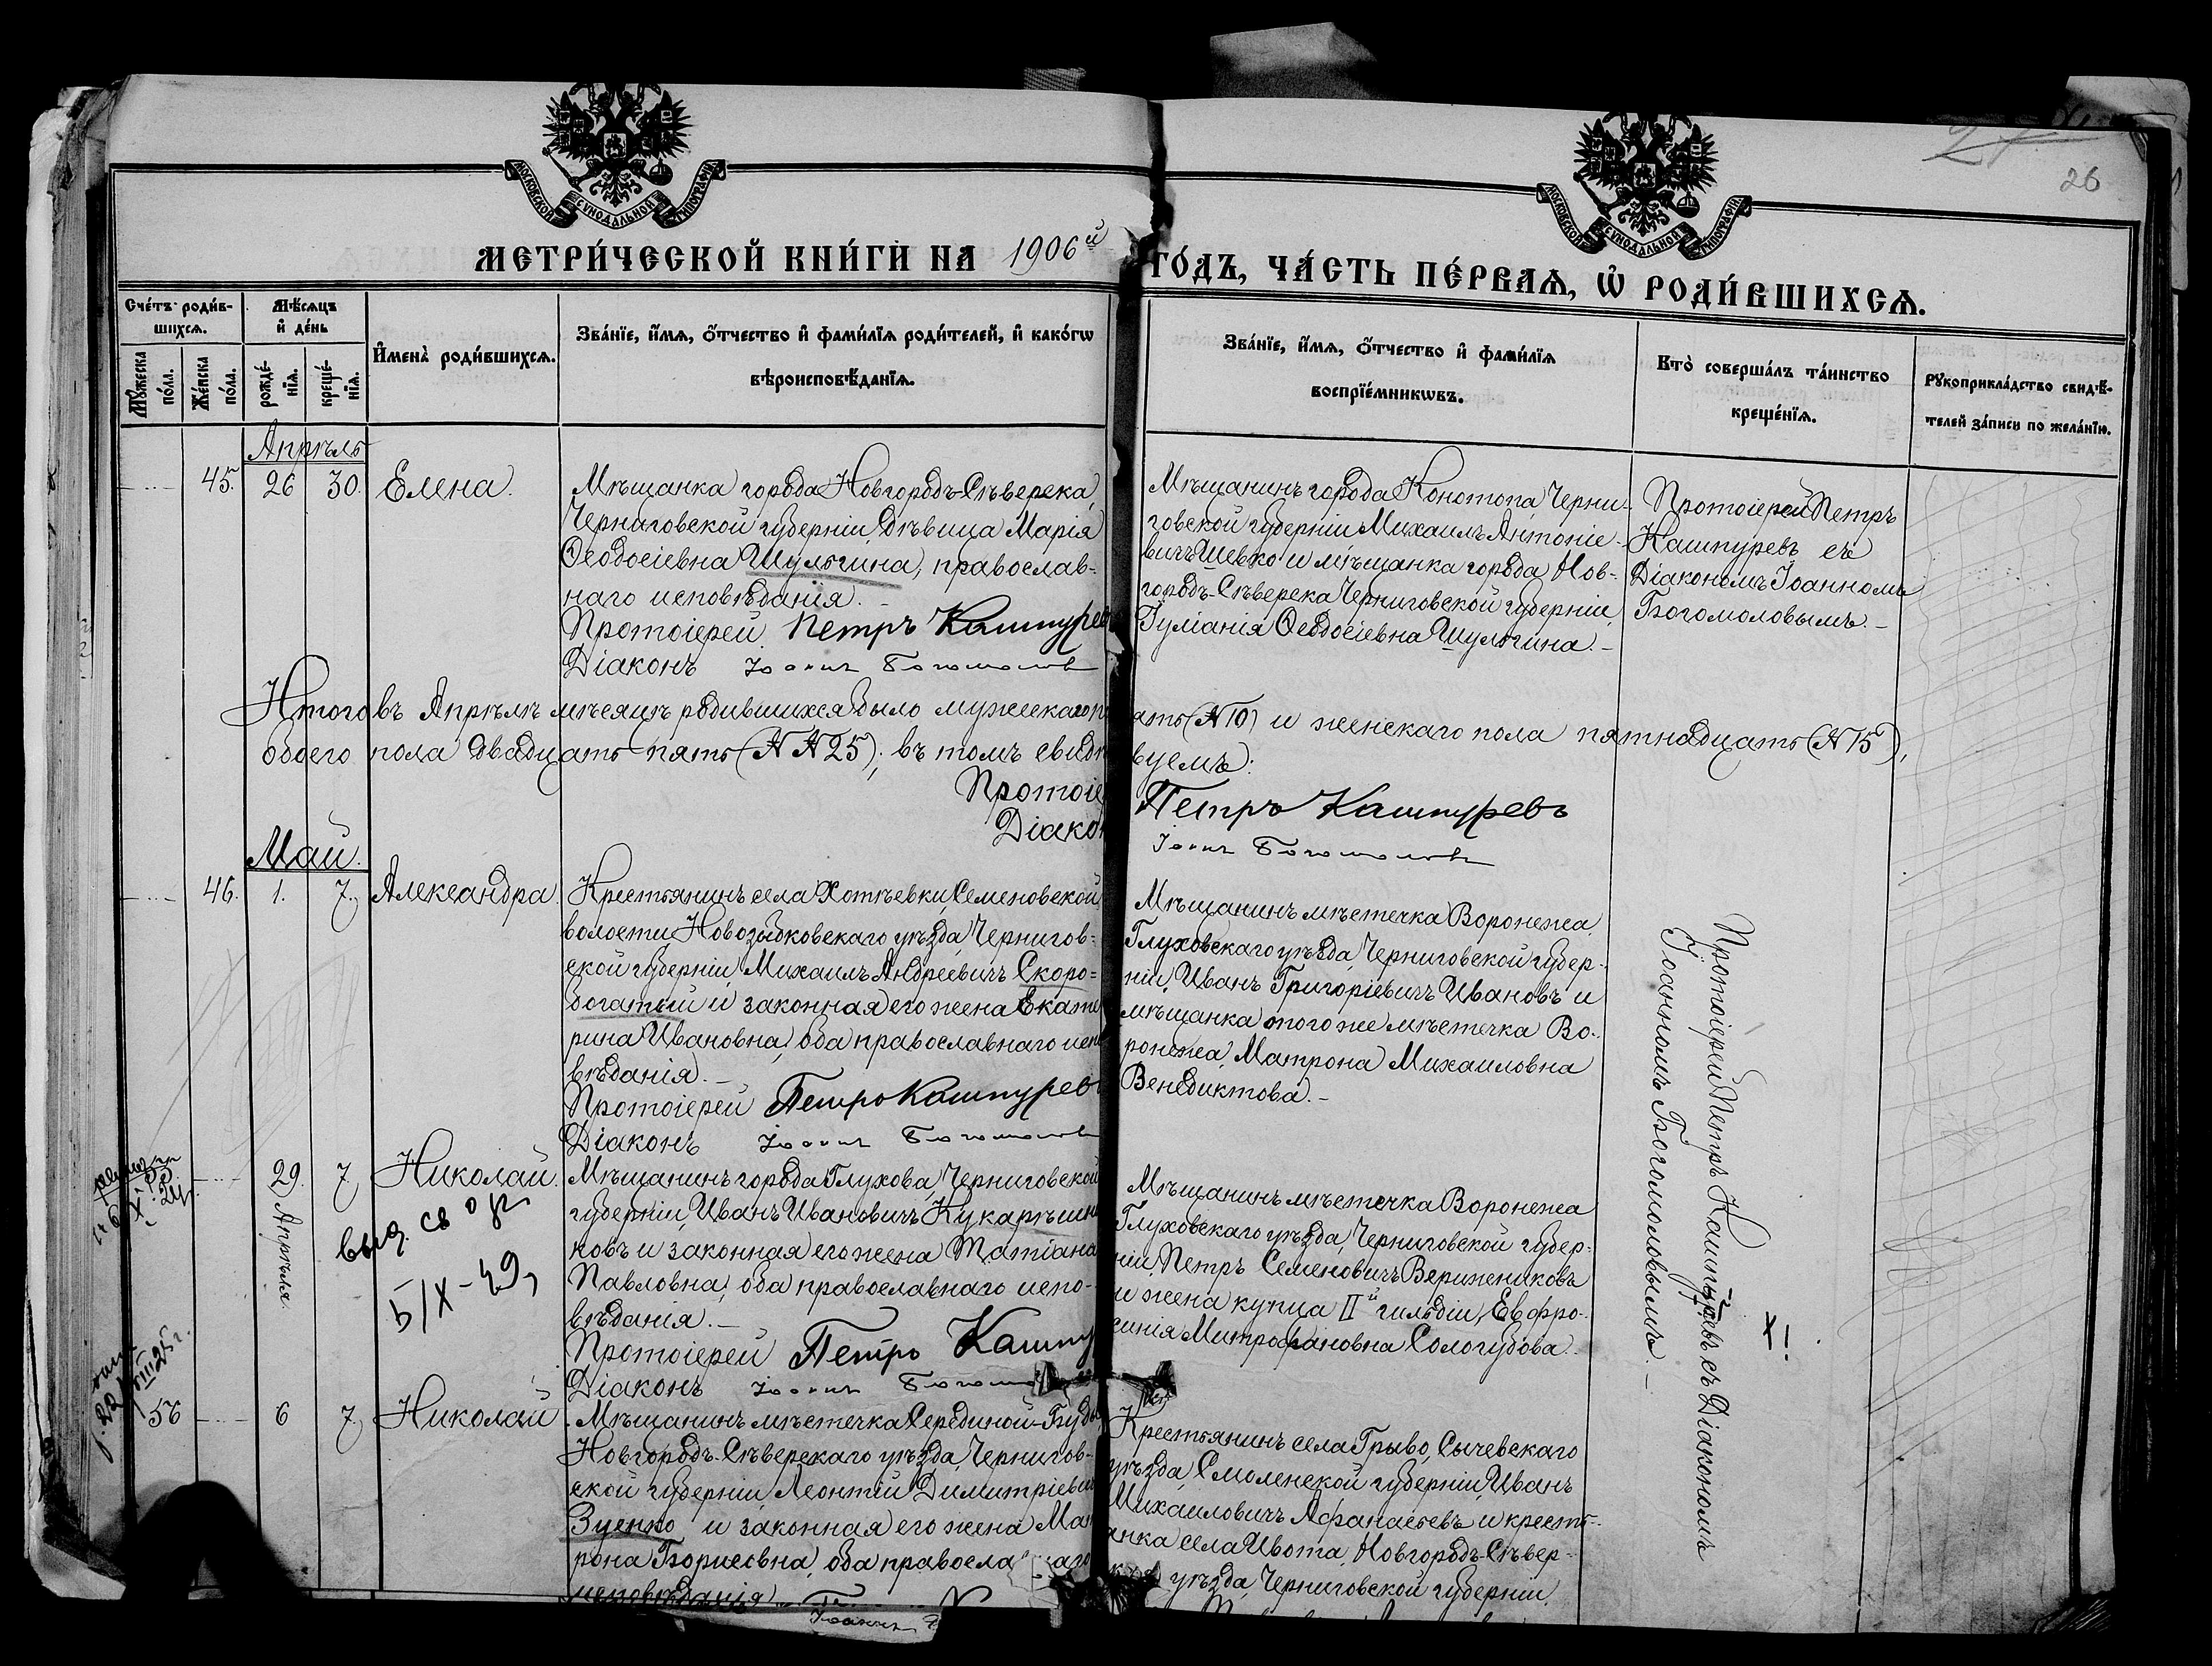 26
МОСКОВСКОЙ СѴНОДАЛЬНОЙ ТИПОГРАФІИ
МОСКОВСКОЙ СѴНОДАЛЬНОЙ ТИПОГРАФІИ
МЕТРИ́ЧЕСКОЙ КНИ́ГИ НА 1906й ГО́ДЪ, ЧА́СТЬ ПЕ́РВАѦ, Ѡ҆ РОДИ́ВШИХСѦ.
Сче́тъ роди́в-
шихсѧ.
Мѣ́сѧцъ
и҆ де́нь
Мꙋжеска
по́ла.
Же́нска
по́ла.
рожде́-
нїѧ.
креще́-
нїѧ.
И҆мена̀ роди́вшихсѧ.
Зва́нїе, и҆́мѧ, о҆́тчество и҆ фами́лїѧ роди́телей, и҆ како́гѡ
вѣроисповѣ́данїѧ.
Зва́нїе, и҆́мѧ, о҆́тчество и҆ фами́лїѧ
воспрїе́мникѡвъ.
Кто̀ соверша́лъ та́инство
креще́нїѧ.
Рꙋкоприкла́дство свидѣ́-
телей за́писи по жела́нїю.
Апрѣль
45. 26 30. Елена.
Мѣщанка города Новгородъ-Сѣверска,
Черниговской губерніи, дѣвица Марія
Ѳеодосіевна Шульгина, православ-
наго исповѣданія. –
Протоіерей Петръ Кашпурев
Діаконъ Іоаннъ Богомолов
Мѣщанинъ города Конотопа, Черни-
говской губерніи Михаилъ Антоніе-
вичъ Шевко и мѣщанка города Нов-
городъ-Сѣверска Черниговской губерніи,
Іуліанія Ѳеодосіевна Шульгина. –
Протоіерей Петръ
Кашпуревъ съ
Діакономъ Іоанномъ
Богомоловымъ. –
Итого въ Апрѣлѣ мѣсяцѣ родившихся было мужескаго п ять (№ 10) и женскаго пола пятнадцать (№ 15),
обоего пола двадцать пять (№№ 25); въ томъ свидѣ вуемъ:
Протоіе Петръ Кашпуревъ
Діакон Іоаннъ Богомолов
Май.
46. 1. 7. Александра.
Крестьянинъ села Хотѣевки, Семеновской
волости, Новозыбковскаго уѣзда, Чернигов-
ской губерніи, Михаилъ Андреевичъ Скоро-
богатый и законная его жена Екате
рина Ивановна, оба православнаго испо
вѣданія. –
Протоіерей Петръ Кашпурев
Діаконъ Іоаннъ Богомолов
Мѣщанинъ мѣстечка Воронежа,
Глуховскаго уѣзда, Черниговской губер-
ніи, Иванъ Григоріевичъ Ивановъ и
мѣщанка этого же мѣстечка Во-
ронежа, Матрона Михаиловна
Венедиктова. –
Протоіерей Петръ Кашпуревъ съ Діакономъ
Іоанномъ Богомоловымъ. –
29. 7 Николай.
Апрѣля
выд. св
5/X-49,
Мѣщанинъ города Глухова, Черниговской
губерніи, Иванъ Ивановичъ Кукарѣшни
ковъ и законная его жена Татіана
Павловна, оба православнаго испо-
вѣданія. –
Протоіерей Петръ Кашпу
Діаконъ Іоаннъ Богомо
Мѣщанинъ мѣстечка Воронежа
Глуховскаго уѣзда, Черниговской губер-
ніи, Петръ Семеновичъ Верижениковъ
и жена купца II й гильдіи, Евфро-
синія Митрофановна Сологубова.
56 6 7. Николай
Мѣщанинъ мѣстечка Середина-Буды
Новгородъ-Сѣверскаго уѣзда, Чернигов-
ской губерніи Леонтій Димитріевич
Зуенко и законная его жена Мат
рона Борисовна, оба правосла аго
исповѣданія
Крестьянинъ села Грыво, Сычевскаго
уѣзда, Смоленской губерніи, Иванъ
Михаиловичъ Афанасьевъ и кресть-
янка села Ивота, Новгородъ-Сѣвер-
уѣзда, Черниговской губерніи,